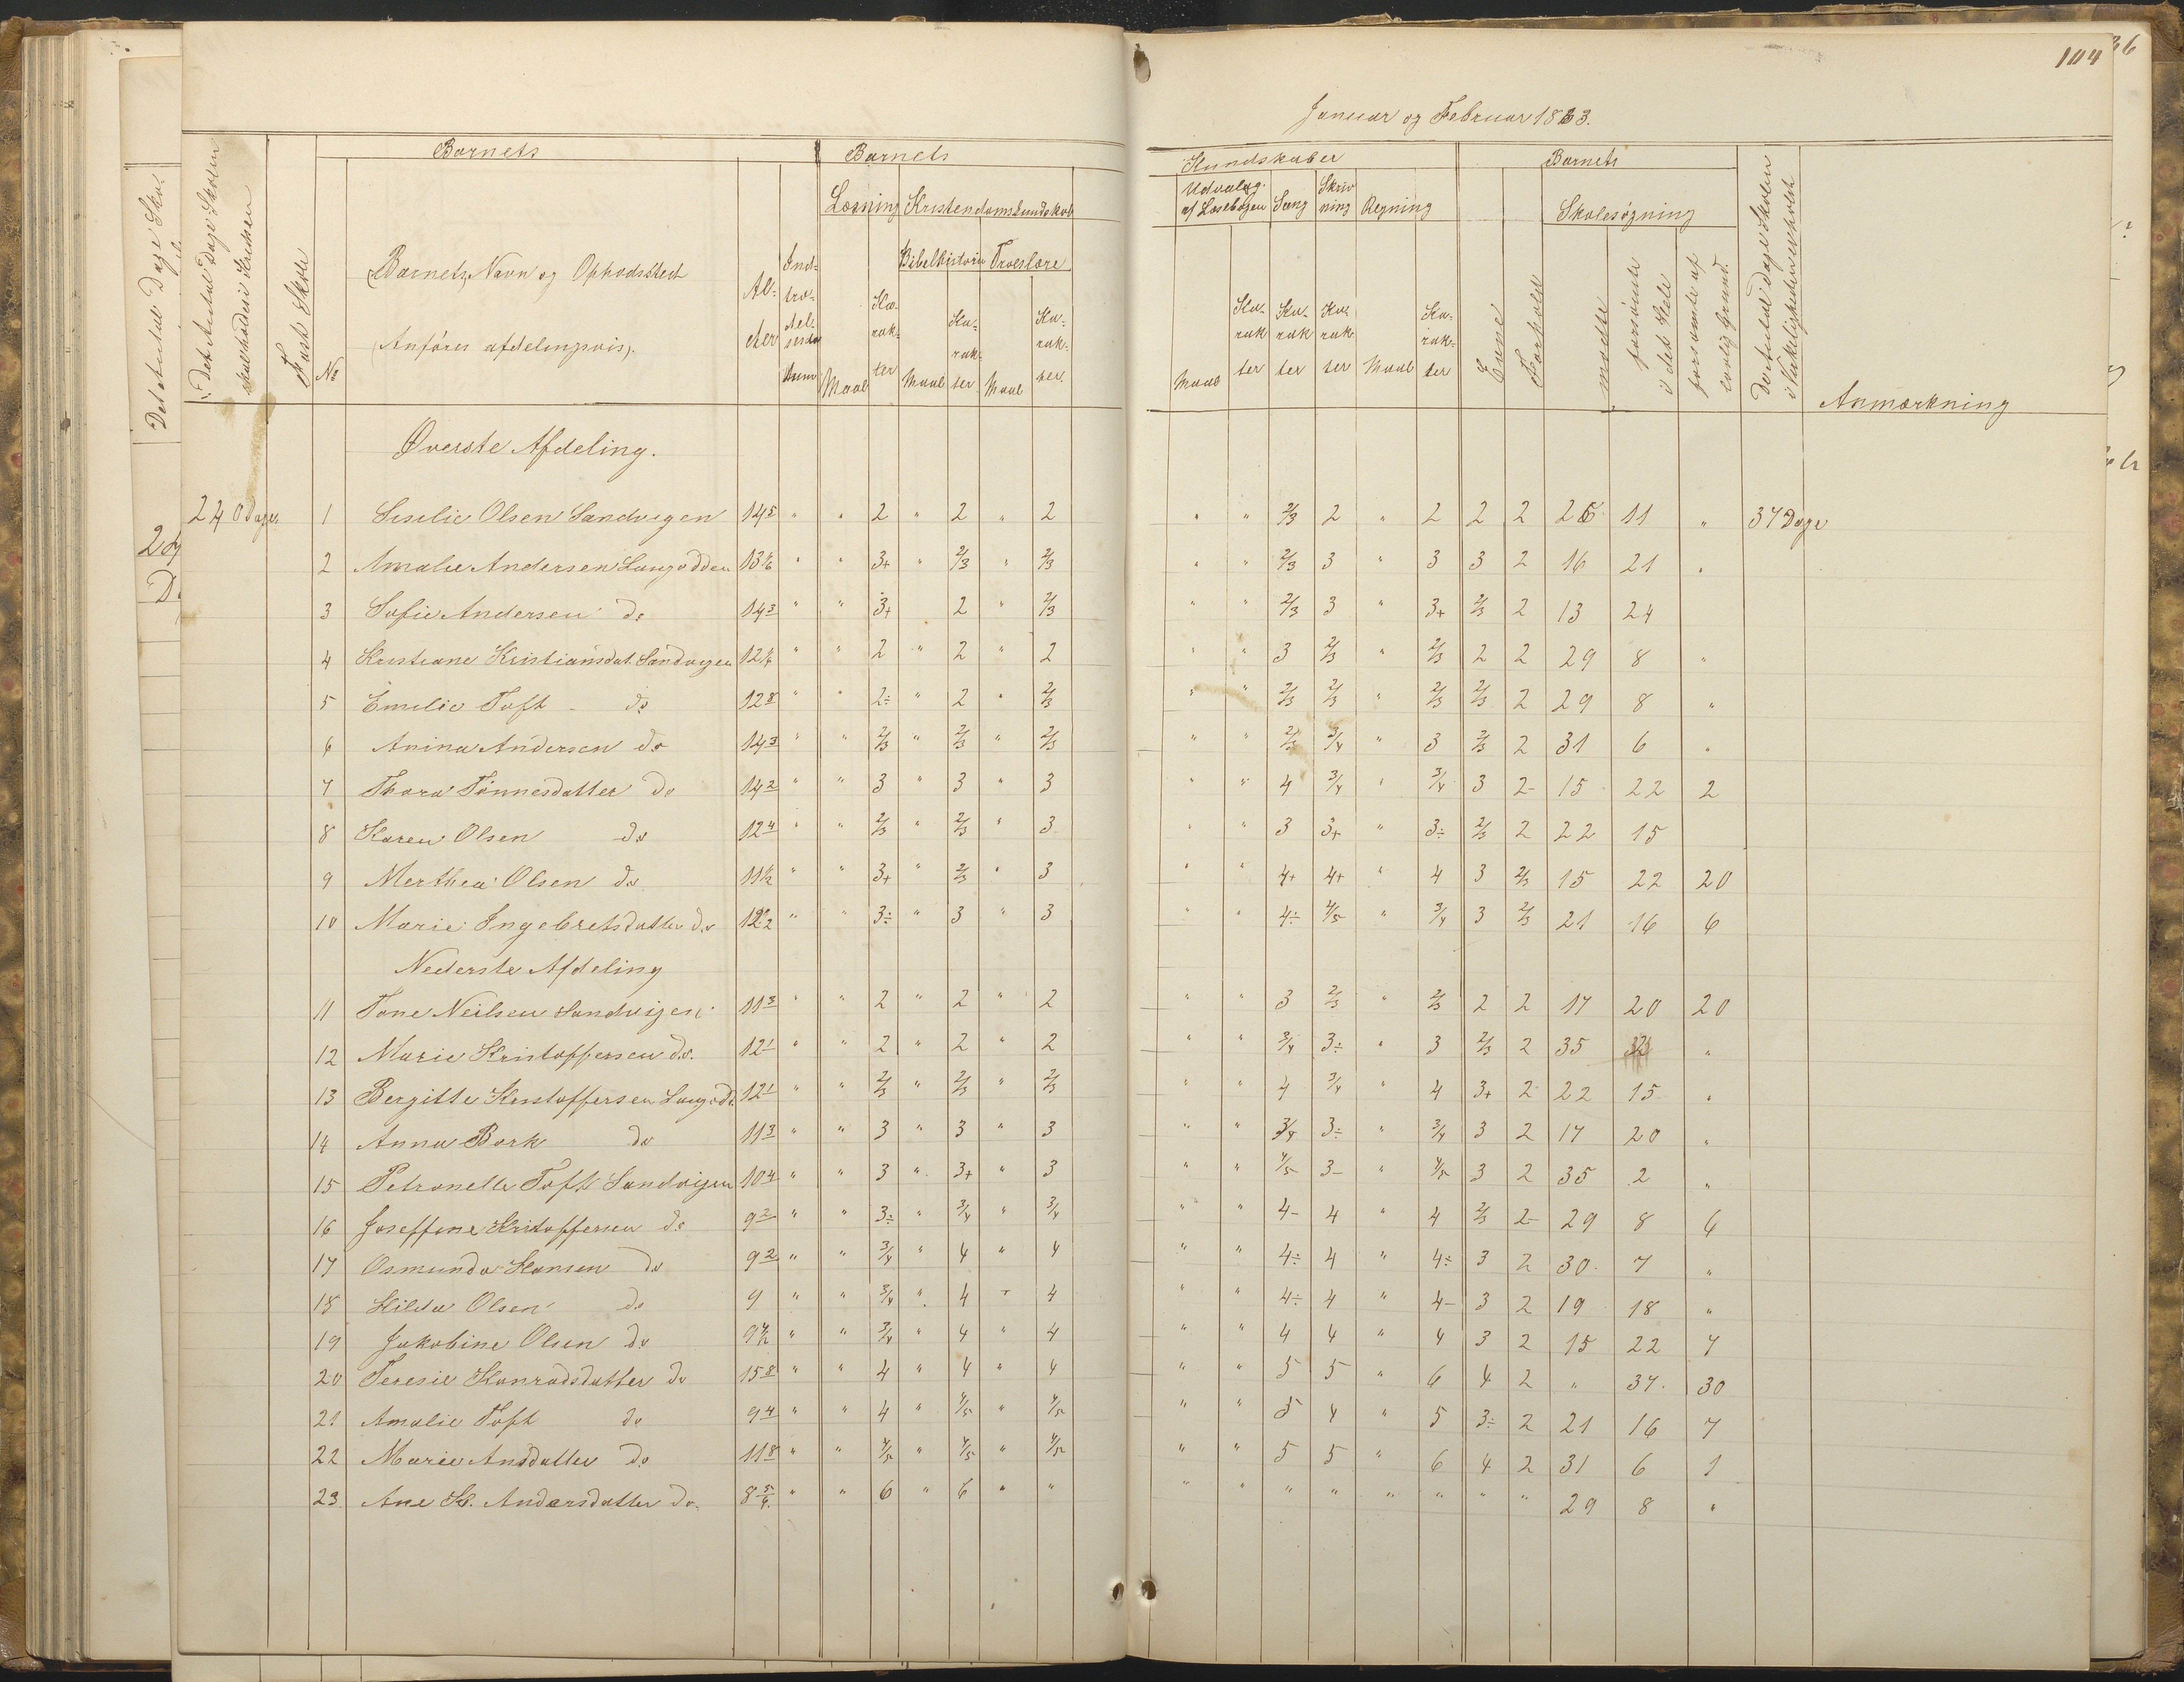 104
36
Januar og Februar 1883.
Det Antal Dage Skolen skal holdes i Kredsen
Fast Skole
Barnets
No
Barnets Navn og Opholdssted
(Anføres afdelingsvis).
Alder
Indtrædelsesdatum
Barnets
Læsning Kristendomskundskab
Bibelhistorie Troeslære
Maal Karakter Maal Karakter Maal Karakter
Kundskaber
Udvalg af Læsebogen Sang Skrivning Regning
Maal Karakter Karakter Karakter Maal Karakter
Barnets
Evne Forhold
Skolesøgning
mødte forsømte i det Hele forsømte af lovlig Grund
Det Antal Dage Skolen i Virkeligheden er holdt
Anmærkning
Øverste Afdeling.
240 Dage 1 Siselie Olsen Sandvigen 14 5 " " 2 " 2 " 2 " " 2/3 2 " 2 2 2 26 11 " 37 Dage
2 Amalie Andersen Langodden 13 1/6 " " 3+ " 2/3 " 2/3 " " 2/3 3 " 3 3 2 16 21 "
3 Sofie Andersen do 14 3 " " 3+ 2 " 2/3 " " 2/3 3 " 3+ 2/3 2 13 24
4 Kristiane Kristiansdat. Sandvigen 12 1/6 " " 2 " 2 " 2 " " 3 2/3 " 2/3 2 2 29 8 "
5 Emilie Toft do 12 8 " " 2÷ " 2 " 2/3 " " 2/3 2/3 " 2/3 2/3 2 29 8 "
6 Anina Andersen do 14 3 " " 2/3 " 2/3 " 2/3 " " 2/3 3/4 " 3 2/3 2 31 6 "
7 Thora Tönnesdatter do 14 2 " " 3 " 3 " 3 " " 4 3/4 " 3/4 3 2- 15 22 2
8 Karen Olsen do 12 4 " " 2/3 " 2/3 " 3 " " 3 3+ " 3÷ 2/3 2 22 15
9 Merthea Olsen do 11 1/2 " " 3+ " 2/3 " 3 " " 4+ 4+ " 4 3 2/3 15 22 20
10 Marie Ingebretsdatter do 12 2 " " 3÷ " 3 " 3 " " 4÷ 4/5 " 3/4 3 2/3 21 16 6
Nederste Afdeling
11 Tone Neilsen Sandvigen 11 3 " " 2 " 2 " 2 " " 3 2/3 " 2/3 2 2 17 20 20
12 Marie Kristoffersen do. 12 1 " " 2 " 2 " 2 " " 3/4 3÷ " 3 2/3 2 35 "
13 Bergitte Kristoffersen Langodd. 12 1 " " 2/3 " 2/3 " 2/3 " " 4 3/4 " 4 3+ 2 22 15 "
14 Anna Bork do 11 3 " " 3 " 3 " 3 " " 3/4 3÷ " 3/4 3 2 17 20 "
15 Petronelle Toft Sandvigen 10 4 " " 3 " 3+ " 3 " " 4/5 3- " 4/5 3 2 35 2 "
16 Joseffine Kristoffersen do 9 2 " " 3÷ " 3/4 " 3/4 " " 4- 4 " 4 2/3 2- 29 8 6
17 Osmunda Hansen do 9 2 " " 3/4 " 4 " 4 " " 4÷ 4 " 4÷ 3 2 30 7 "
18 Hilda Olsen do 9 " " 3/4 " 4 " 4 " " 4÷ 4 " 4- 3 2 19 18 "
19 Jakobine Olsen do 9 1/2 " " 3/4 " 4 " 4 " " 4 4 " 4 3 2 15 22 7
20 Teresie Konradsdatter do 15 8 " " 4 " 4 " 4 " " 5 5 " 6 4 2 " 37 30
21 Amalie Toft do 9 4 " " 4 " 4/5 " 4/5 " " 5 4 " 5 3÷ 2 21 16 7
22 Marie Ansdatter do 11 8 " " 4/5 " 4/5 " 4/5 " " 5 5 " 6 4 2 31 6 1
23 Ane K. Andersdatter do. 8 5/6 " " 6 " 6 " " " " " " " " " 29 8 "